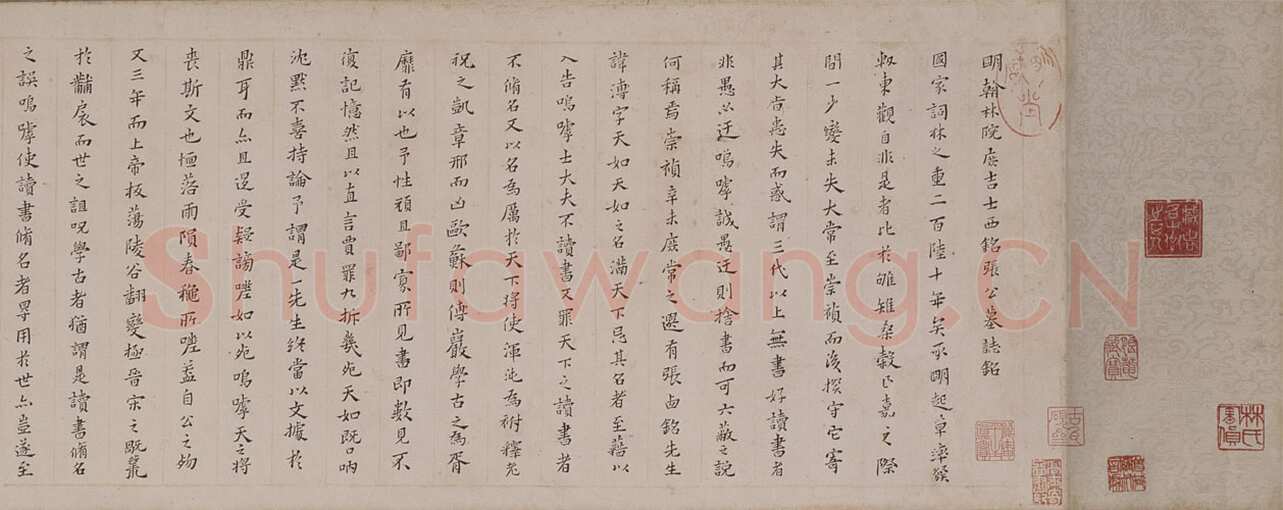 明翰林院庶吉士西銘張公墓誌銘
國家詞林之重二百陸十年矣承明起草濡毫
東觀自非是者比於雊雉桑穀正嘉之際
間一少變未失大常至崇禎而後揆守它寄
其大肯患失而惑謂三代以上無書好讀書者
非愚必迂嗚嘑誠愚迂則捨書而可六蔽之說
何稱焉崇禎辛未庶常之選有張西銘先生
諱溥字天如天如之名滿天下忌其名者至藉以
入告嗚嘑士大夫不讀書又罪天下之讀書者
不脩名又以名為厲於天下將使渾沌為祔釋
祝之凱章邪而凶歐蘇則傅巖學古之為胥
靡有以也予性頑且鄙寡所見書即數見不
復記憶然且以直言賈罪九拆幾死天如既口吶
沈默不喜持論予謂是一先生終當以文據於
鼎耳而亦且遝受疑謗嗟如以死嗚嘑天之將
喪斯文也恒落雨隕春穐所嗟蓋自公之歾
又三年而上帝板蕩陵谷翻變極晉宋之
於黼扆而世之詛呪學古者猶謂是讀書脩名
之誤嗚嘑使讀書脩名者畢用於世亦豈遂至
林氏
Shufawang.CN